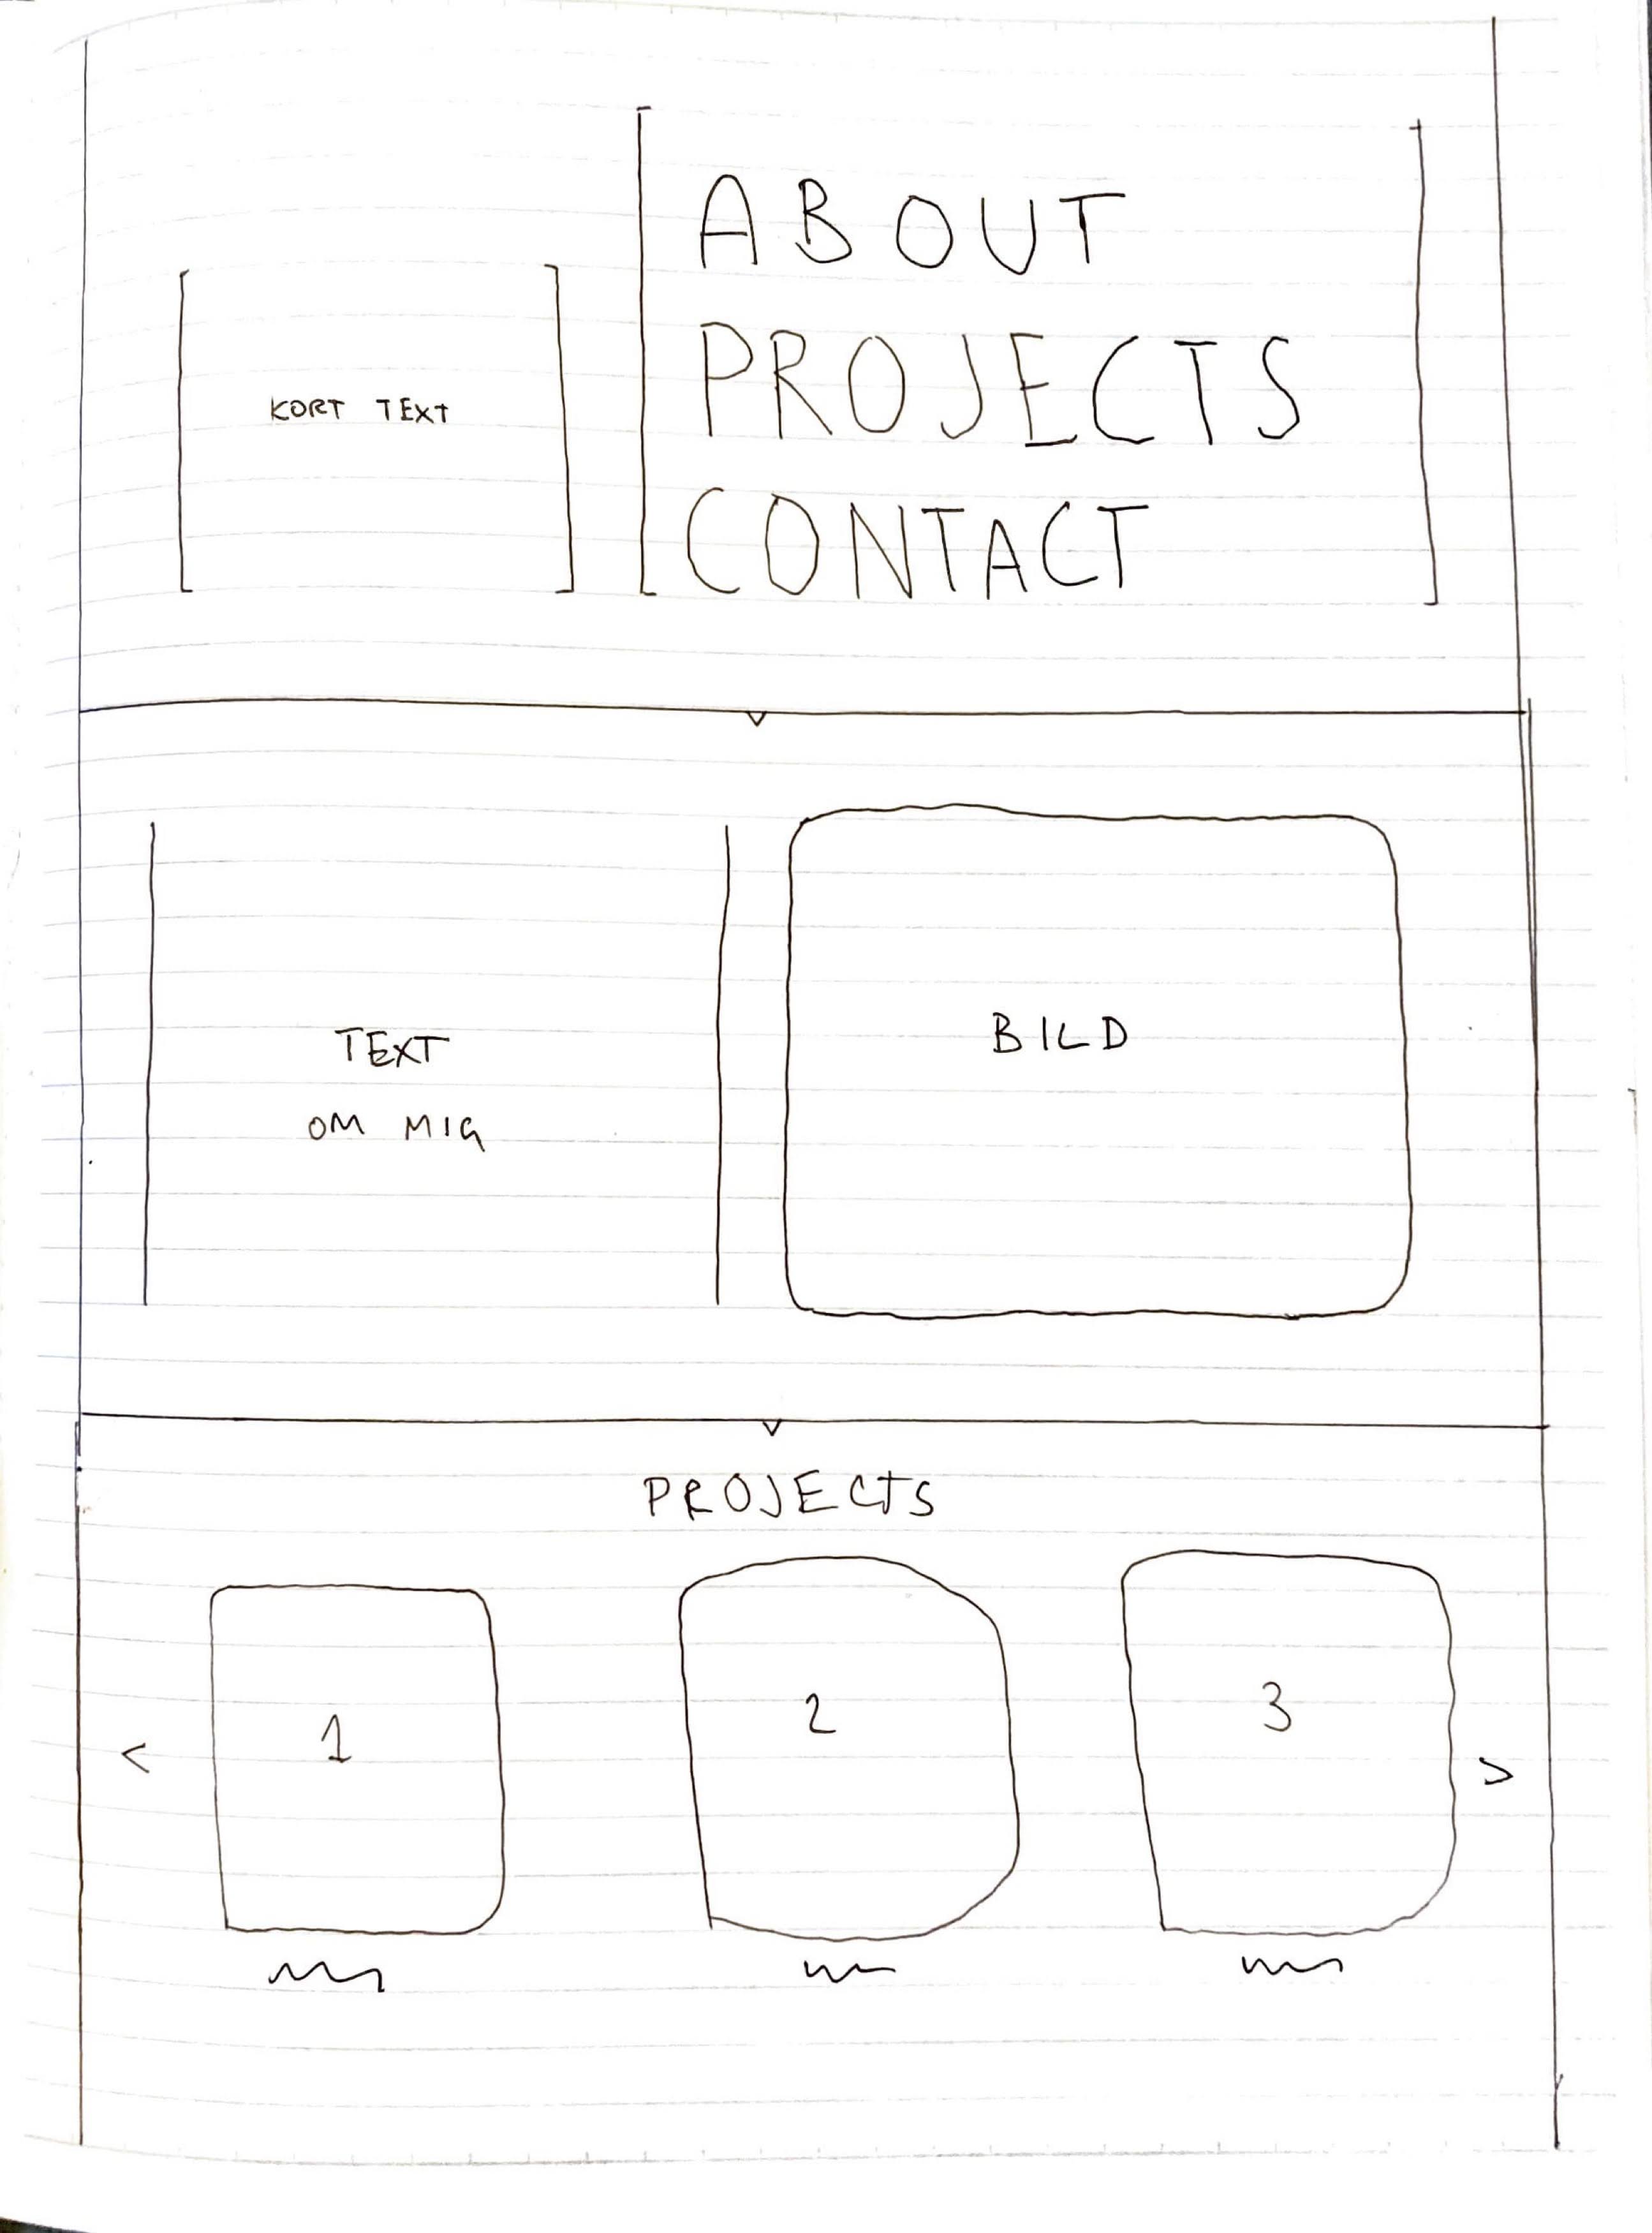 ABOUT
KORT TEXT
PROJECTS
CONTACT
TEXT
OM MIG
BILD
PROJECTS
1
2
3
< >